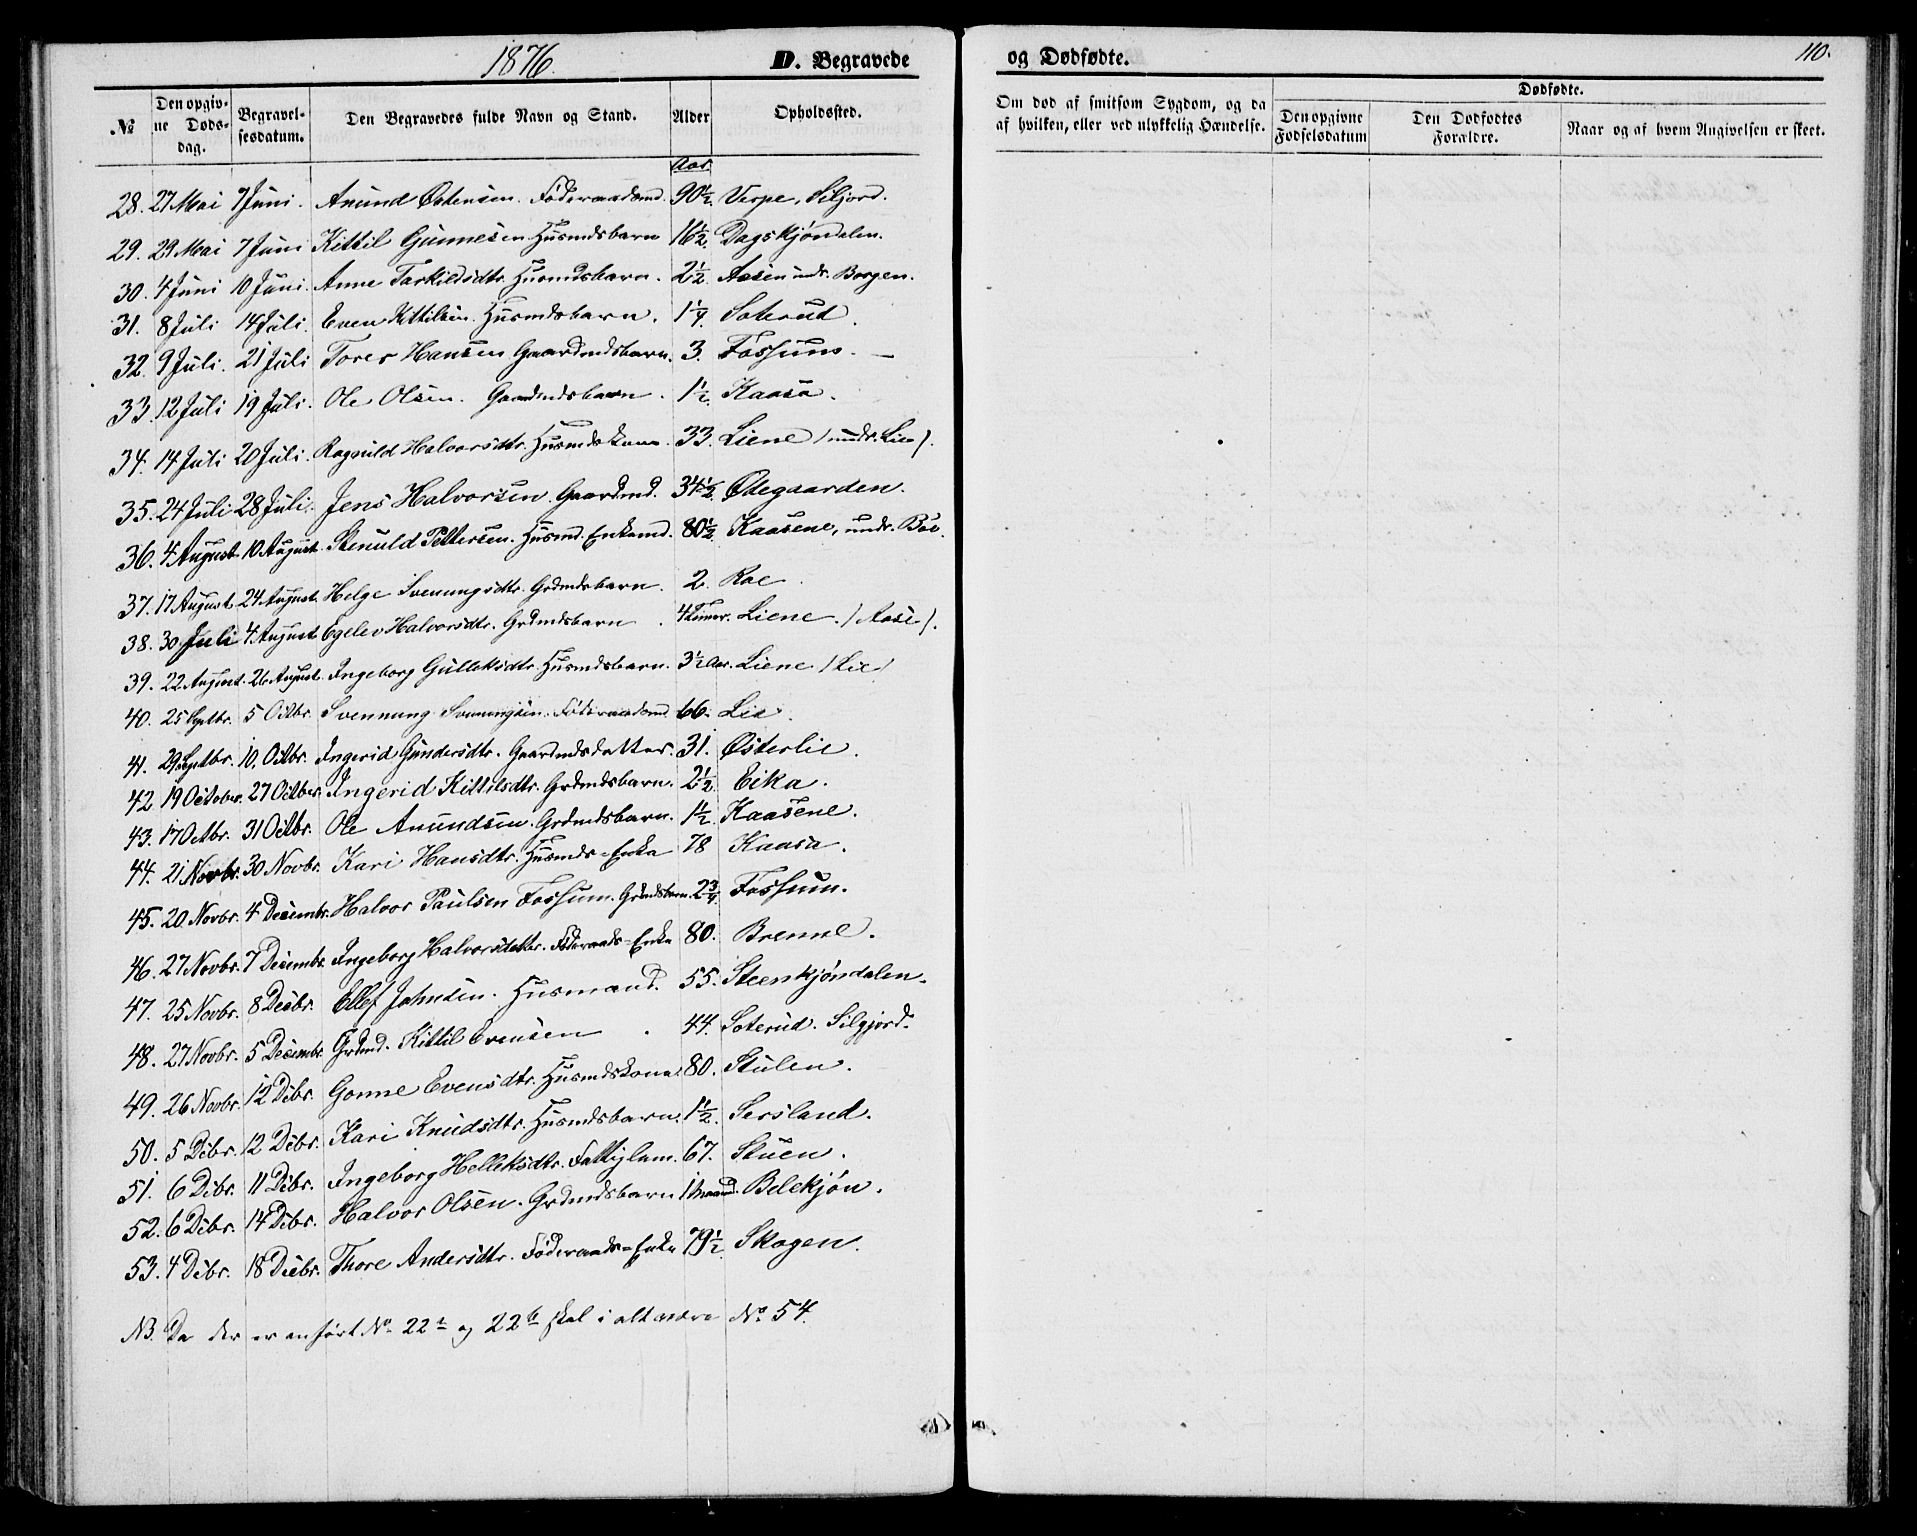 1876.
D. Begravede
og Dødfødte.
110.
№
Den opgivne Dødsdag.
Begravelsesdatum.
Den Begravedes fulde Navn og Stand.
Alder
Opholdssted.
Om død af smitsom Sygdom, og da af hvilken, eller ved ulykkelig Hændelse.
Dødfødte.
Den opgivne Fødselsdatum
Den Dødfødtes Forældre.
Naar og af hvem Angivelsen er skeet.
Aar
28. 27 Mai 7 Juni. Anund Østensen. Føderaadsmd. 90½. Verpe, Siljord.
29. 29 Mai 7 Juni Kittil Gunnesen Husmdsbarn 16½. Dagskjøndalen.
30. 4 Juni 10 Juni. Anne Tarkildsdtr. Husmdsbarn. 2½. Aasen undr. Borgen.
31. 8 Juli 14 Juli. Even Kittilsen. Husmdsbarn. 1¼. Soterud.
32. 9 Juli. 21 Juli Tores Hansen Gaardmdsbarn. 3. Fossum. —
33. 12 Juli 19 Juli. Ole Olsen. Gaardmdsbarn. 1½. Kaasa.
34. 14 Juli 20 Juli. Ragnild Halvorsdtr. Husmdskone. 33. Liene / undr. Lie /.
35. 24 Juli 28 Juli. Jens Halvorsen. Gaardmd. 34½. Ødegaarden.
36. 4 August 10 August. Stenuld Pettersen. Husmd. Enkemd. 80½. Kaasene, undr. Bøe.
37. 17 August 24 August. Helge Svenungsdtr. Grdmdsbarn. 2. Roe.
38. 30 Juli 4 August Egelev Halvorsdtr. Grdmdsbarn. 4 Timer. Liene. / Aase /.
39. 22 August. 26 August. Ingeborg Gulleksdtr. Husmdsbarn. 3½ Aar. Liene / Lie /
40. 25 Septbr. 5 Octbr. Svennung Svenungsen. Føderaadsmd. 66. Lie.
41. 29 Septbr. 10. Octbr. Ingerid Gundersdtr. Gaardmdsdatter. 31. Østerlie.
42 19 October. 27 October. Ingerid Kittilsdtr. Grdmdsbarn. 2½. Eika.
43. 17 Octbr. 31 Octbr. Ole Anundsen. Grdmdsbarn. 1½. Kaasene.
44. 21 Novbr. 30 Novbr. Kari Hansdtr. Husmds-Enke 78 Kaasa.
45. 20 Novbr. 4 Decembr. Halvor Paulsen Fossum. Grdmdsbarn. 2¾. Fossum.
46. 27 Novbr. 7 Decembr. Ingeborg Halvorsdatter. Føderaads-Enke 80. Brenne.
47. 25 Novbr. 8 Decbr. Ellef Johnsen. Husmand. 55. Steenkjøndalen.
48. 27 Novbr. 5 Decembr. Grdmd. Kittil Evensen. 44. Soterud. Silgjord.
49. 26 Novbr. 12 Dcbr. Gonne Evensdtr. Husmdskone. 80. Stulen.
50. 5 Dcbr. 12 Dcbr. Kari Knudsdtr. Husmdsbarn. 1½. Sersland.
51. 6 Dcbr. 11 Dcbr. Ingeborg Helleksdtr. Fattiglem. 67. Stuen.
52. 6 Dcbr. 14 Dcbr. Halvor Olsen. Grdmdsbarn 1 maaned. Belekjøn.
53. 4 Dcbr. 18 Decbr. Thore Andersdtr. Føderaads-Enke 79½. Skogen.
NB. Da der er anført № 22a og 22b skal i alt være № 54.